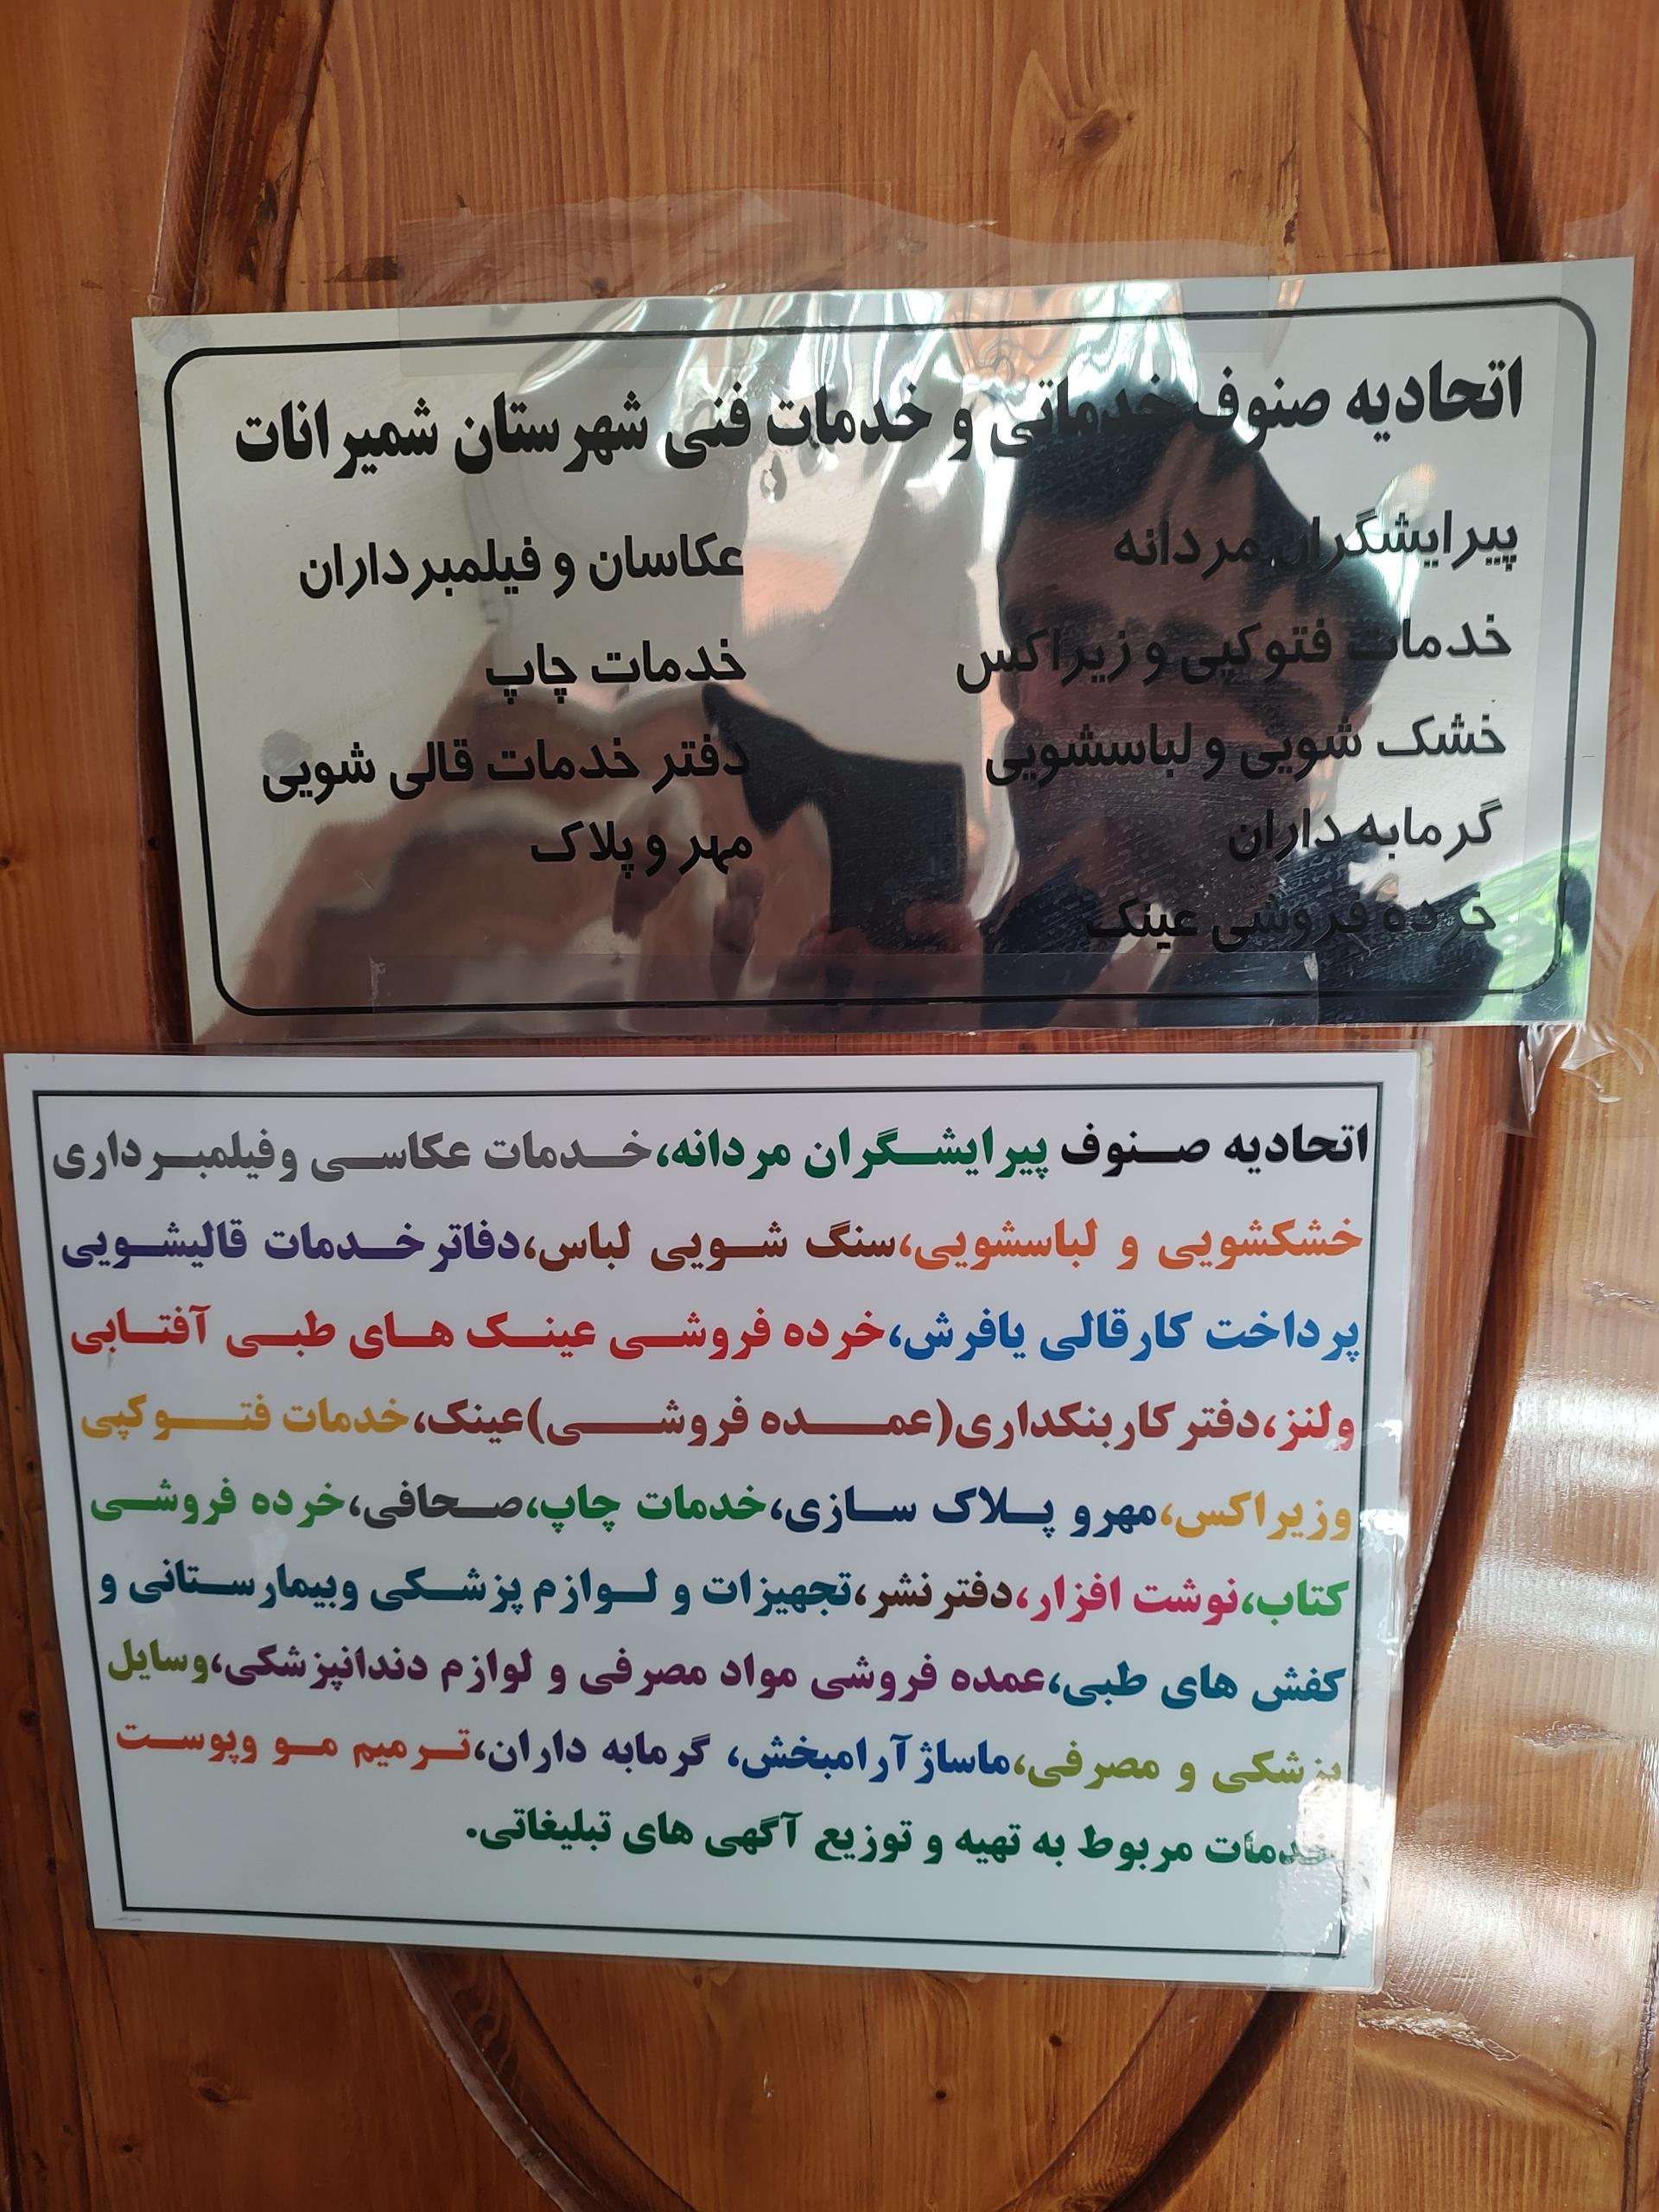 اتحادیه صنوف خدماتی و خدمات فنی شهرستان شمیرانات
پیرایشگران مردانه
خدمات فتوکپی و زیراکس
خشک شویی و لباسشویی
گرمابه داران
خرده فروشی عینک
عکاسان و فیلمبرداران
خدمات چاپ
دفتر خدمات قالی شویی
مهر و پلاک
اتحادیه صنوف پیرایشگران مردانه،خدمات عکاسی وفیلمبرداری
خشکشویی و لباسشویی،سنگ شویی لباس،دفاتر خدمات قالیشویی
پرداخت کار قالی یافرش،خرده فروشی عینک های طبی آفتابی
ولنز،دفتر کار بنکداری(عمده فروشی)عینک،خدمات فتوکپی
وزیراکس،مهر و پلاک سازی،خدمات چاپ،صحافی،خرده فروشی
کتاب،نوشت افزار،دفتر نشر،تجهیزات و لوازم پزشکی وبیمارستانی و
کفش های طبی،عمده فروشی مواد مصرفی و لوازم دندانپزشکی،وسایل
پزشکی و مصرفی،ماساژ آرامبخش، گرمابه داران،ترمیم مو وپوست
خدمات مربوط به تهیه و توزیع آگهی های تبلیغاتی.